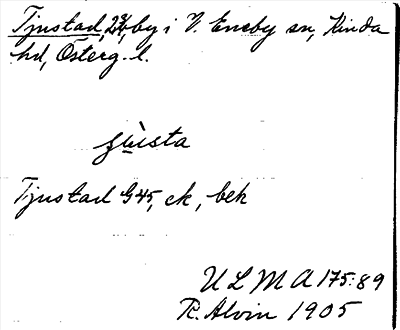 Tjustad, by i V. Eneby sn, Kinda
hd, Österg. l.
Tjustad G 45, ek, bek
ULMA 175:89
R. Alvin 1905